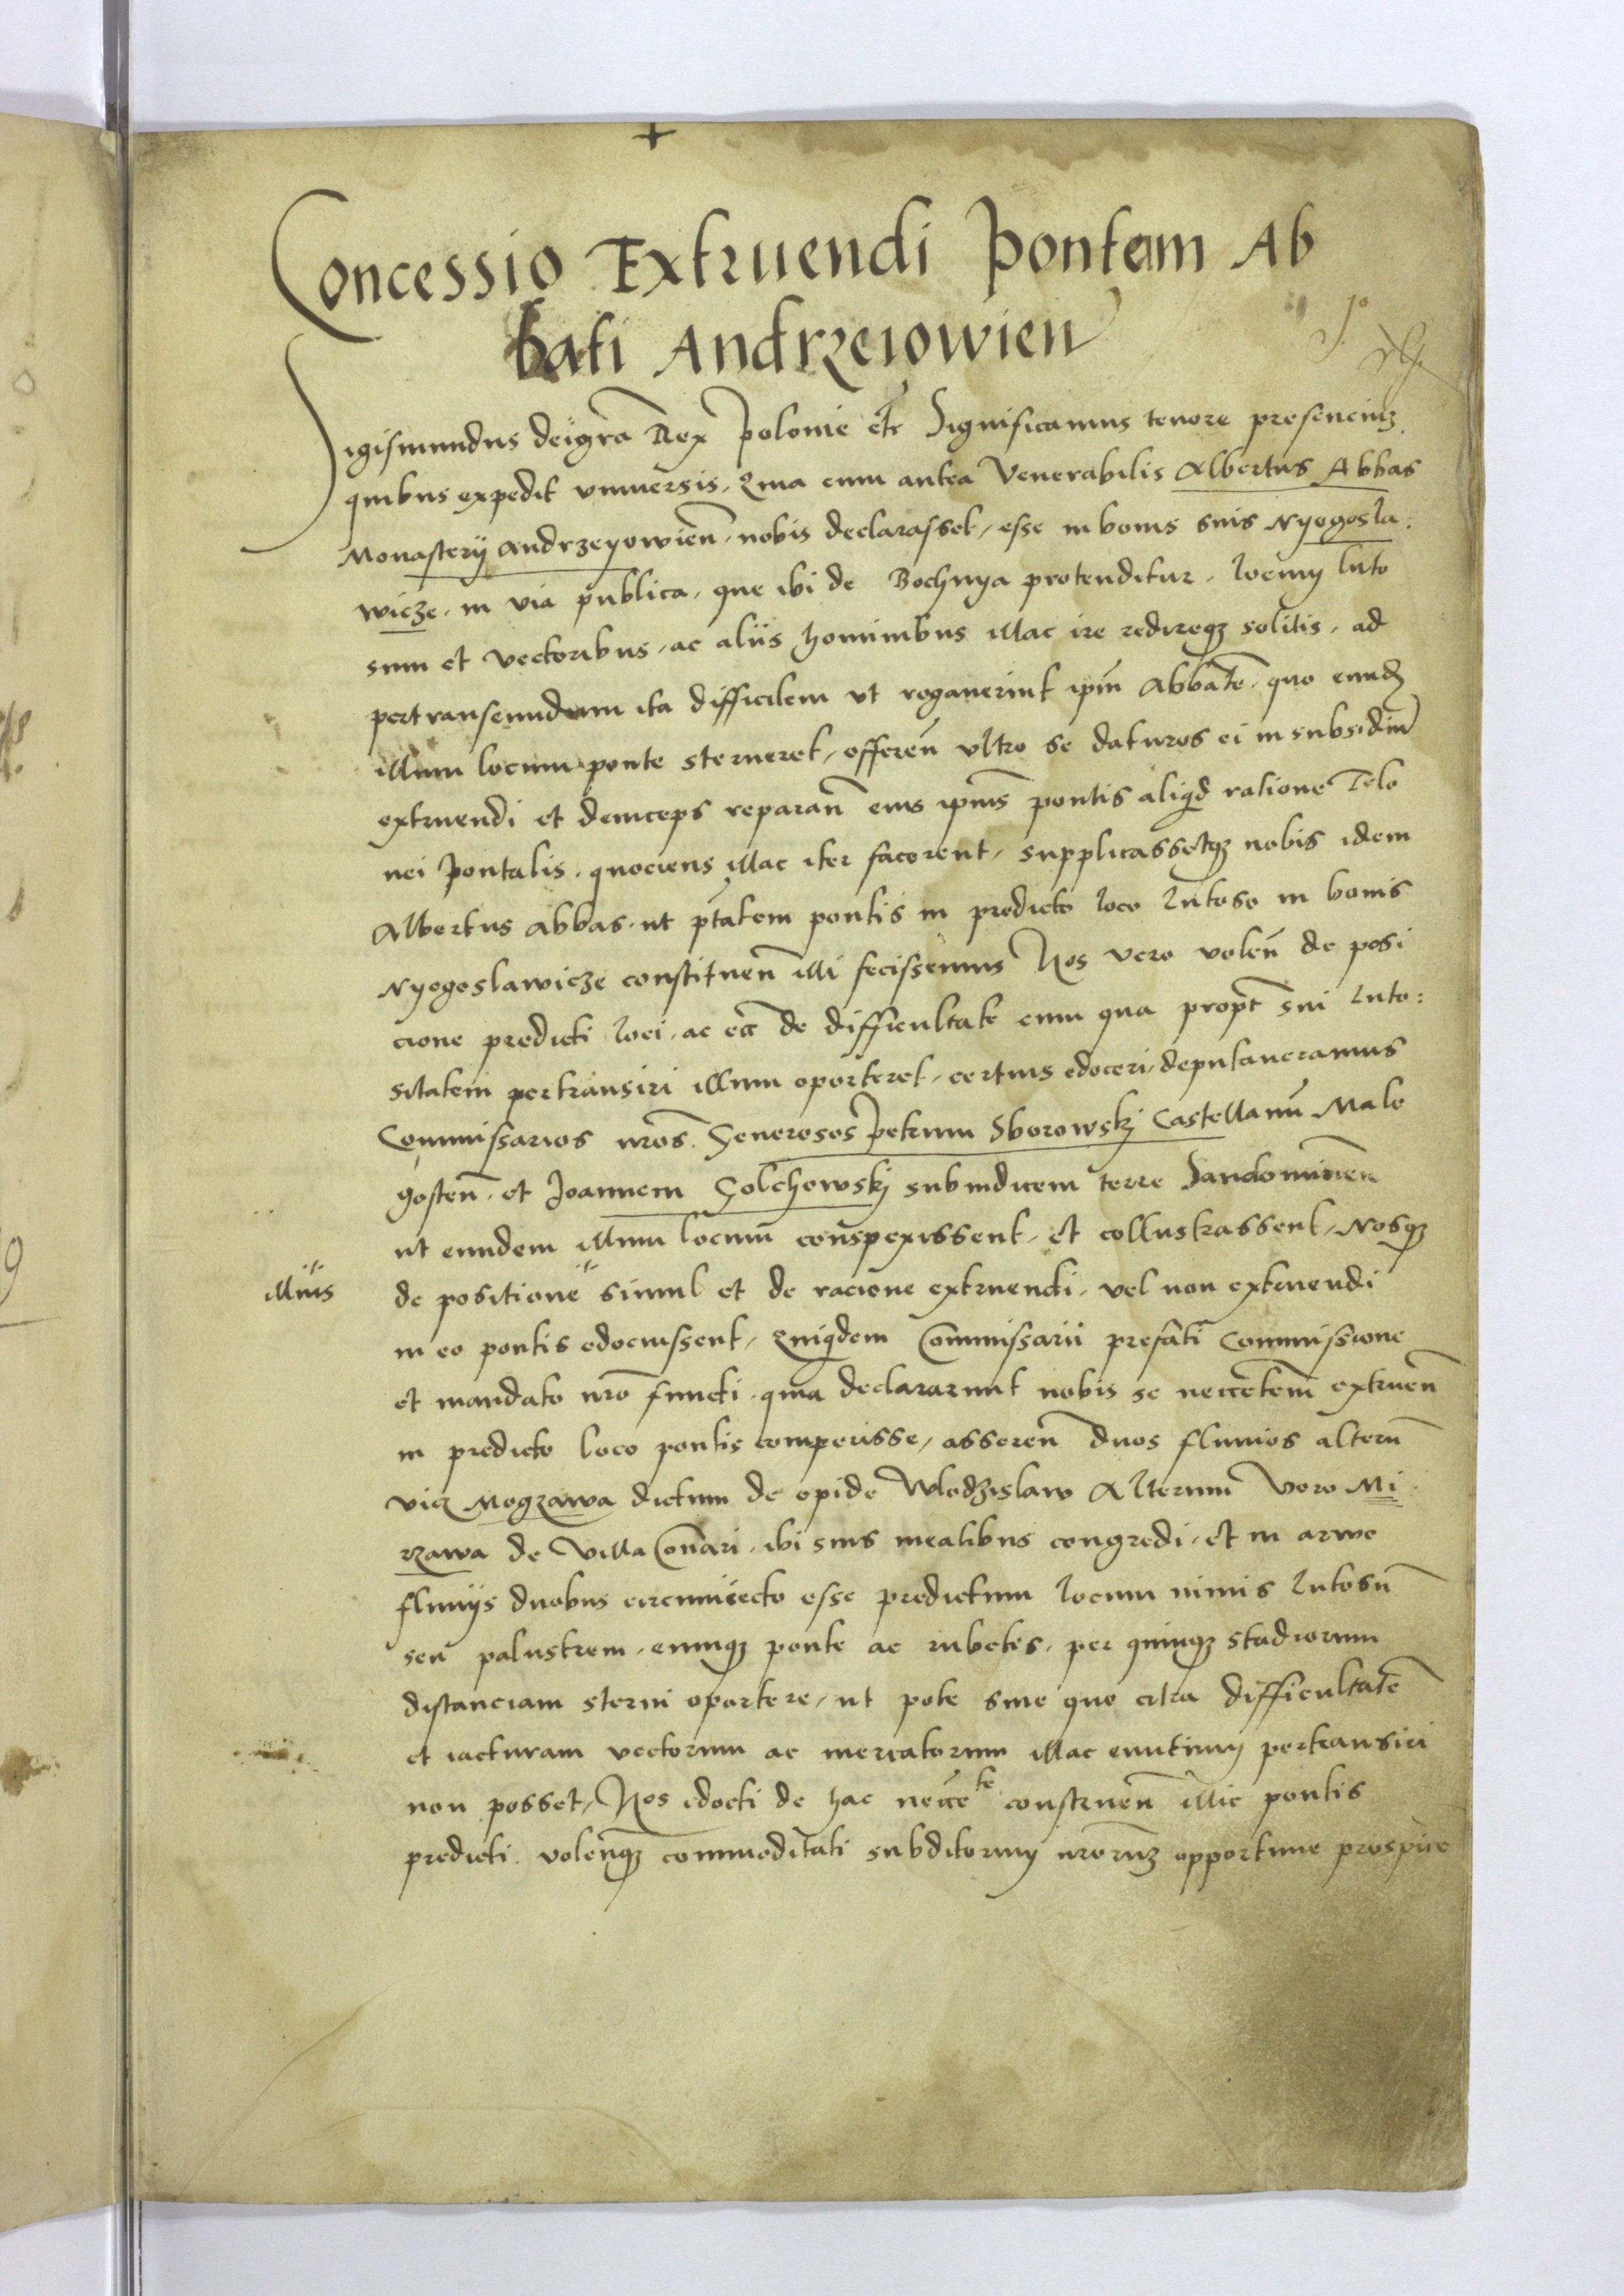 Concessio Extruendi Pontem Ab
bati Andrzeiowien̄
Sigismundus dei gr̄a Rex Polonie etc̄ Significamus tenore presenciuꝫ
quibus expedit vniuersis. Quia cum antea Venerabilis Albertus Abbas
Monasterij Andrzeyowien̄. nobis declarasset, esse in bonis suis Nyegosla:
wicze. in via publica, que ibi de Bochnya protenditur. locum luto
sum et vectoribus, ac aliis hominibus illac ire redireqꝫ solitis, ad
pertranseundum ita difficilem vt rogauerint ip̄m Abbatē. quo eund̄
illum locum ponte sterneret, offeren̄ vltro se daturos ei in subsidiū
extruendi et deinceps reparan̄ eius ip̄ius pontis aliqd ratione Telo
nei pontalis. quociens illac iter facerent, supplicassetqꝫ nobis idem
Albertus Abbas. ut ptātem pontis in predicto loco lutoso in bonis
Nyegoslawicze constituen̄ illi fecissemus Nos vero volen̄ de posi
cione predicti loci. ac ec̄ de difficultate cum qua propt̄ sui luto:
sitatem pertransiri illum oporteret, certius edoceri, deputaueramus
Commissarios nr̄os. Generosos Petrum Sborowskj Castellanū Malo
gosten̄. et Joannem Golchowskj subiudicem terre Sandomirien̄
ut eundem illum locum conspexissent, et collustrassent, Nosqꝫ
illius de positione " simul et de racione extruendi, vel non extruendi
in eo pontis edocuissent, Quiqdem Commissarii prefati Commissione
et mandato nr̄o functi. quia declararunt nobis se neccēt̄em extruen̄
in predicto loco pontis comperisse, asseren̄ duos fluuios alterū
vicꝫ Mogzawa dictum de opido Wlodzislaw Alterum Vero Mi
rzawa de Villa Conari. ibi suis meatibus congredi. et in aruo
fluuijs duobus circumiecto esse predictum locum nimis lutosū
seu palustrem. eumqꝫ ponte ac rubetis. per quinqꝫ stadiorum
distanciam sterni oportere, ut pote sine quo citra difficultatē
et iacturam vectorum ac mercatorum illac euntium pertransiri
non posset, Nos edocti de hac neccē^te construen̄ illic pontis
predicti. volenqꝫ commoditati subditorum nr̄oruꝫ opportune prospice